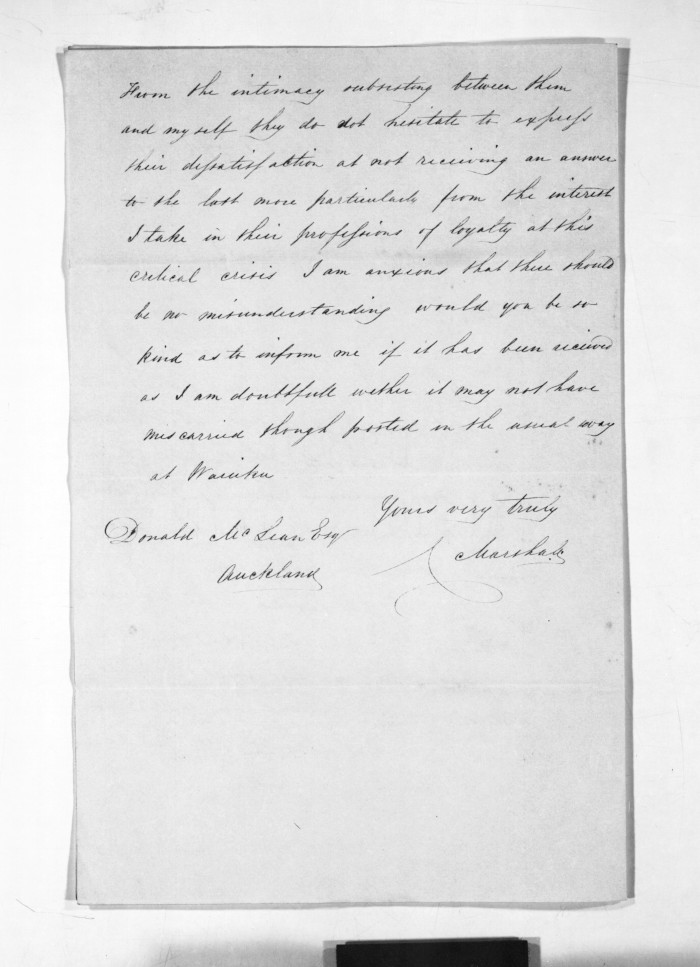 From the intimacy subsisting between them
and myself they do not hesitate to express
their dissatisfaction at not receiving an answer
to the last more particularly from the interest
I take in their professions of loyalty at this
critical crisis I am anxious that there should
be no misunderstanding would you be so
kind as to inform me if it has been received
as I am doubtfull wether it may not have
miscarried though posted in the usual way
at Waiuku
Yours very truly
Marshall
Donald McLean Esq
Auckland